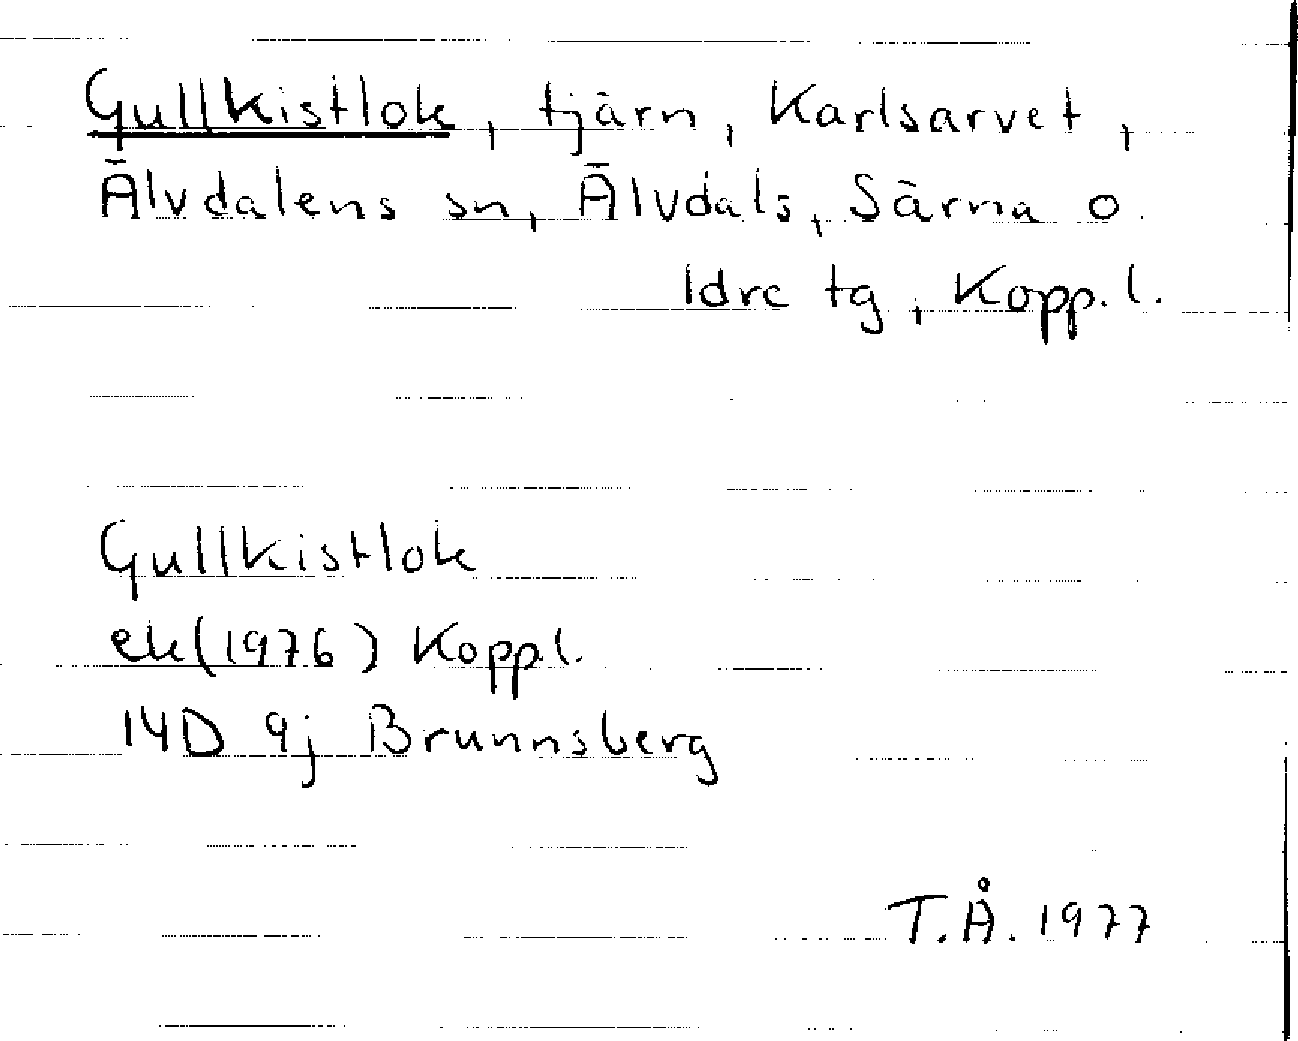 Gullkistlok, tjärn, Karlsarvet,
Älvdalens sn, Älvdals, Särna o.
Idre tg, Kopp. l.
Gullkistlok
ek(1976) Koppl.
14D 9j Brunnsberg
T.Å. 1977